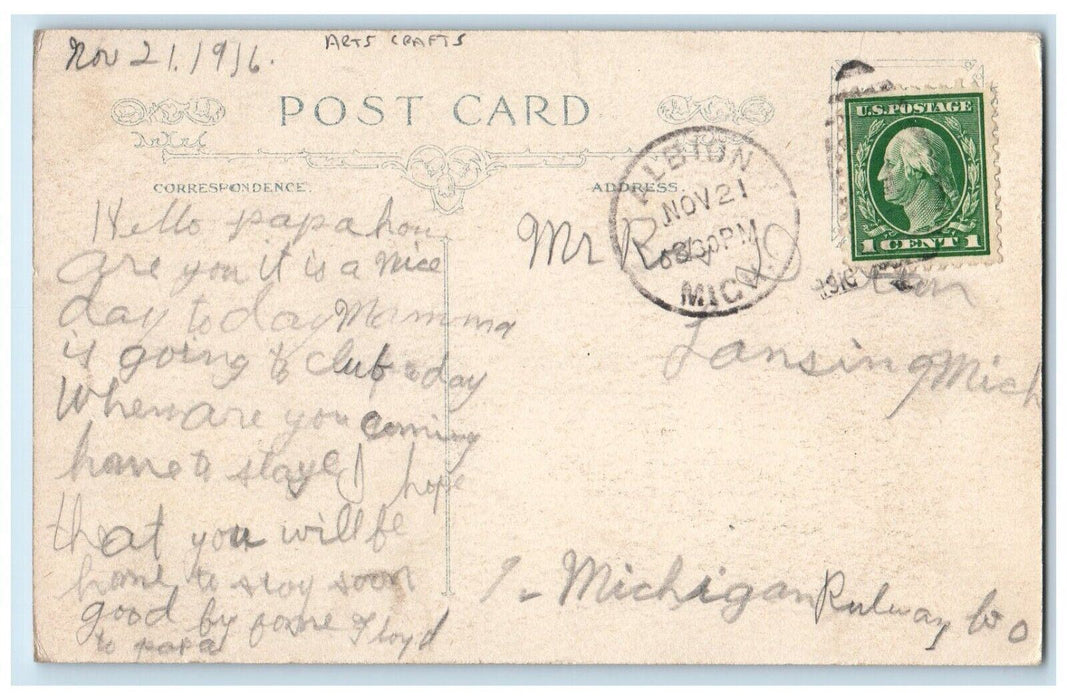 Nov 21. 1916.
ARTS CRAFTS
POST CARD
CORRESPONDENCE.
ADDRESS.
U.S. POSTAGE
1 CENT 1
ALBION
NOV 21
630PM
MICH
1916
Hello papa how
are you it is a nice
day to day Mamma
is going to club today
When are you coming
home to staye I hope
that you will be
home to stay soon
good by fome Floyd
to papa
Mr
Lansing Mich
Michigan Rulway Co